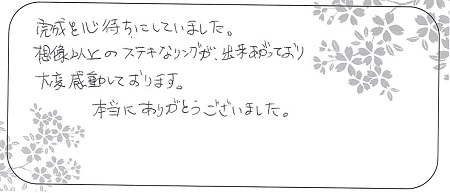 完成を心待ちにしていました。
想像以上のステキなリングが、出来あがっており
大変感動しております。
本当にありがとうございました。